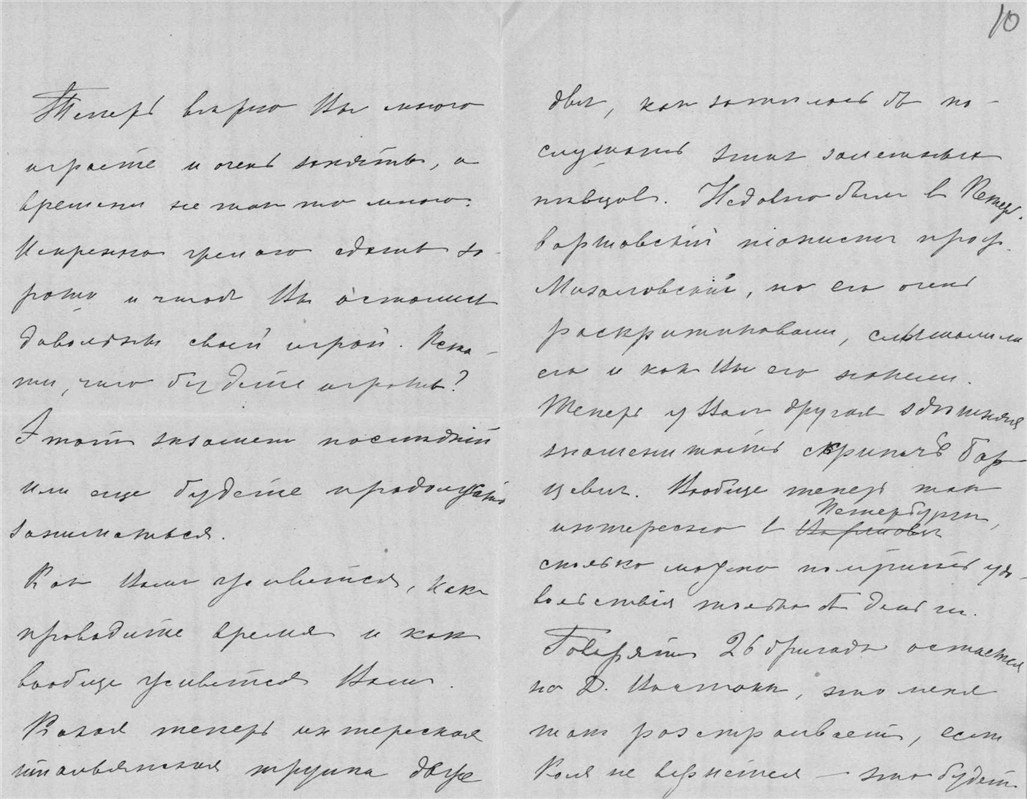 10
Теперь верно Вы много
играете и очень заняты, а
времени не так то много.
Искренно желаю сдать хо-
рошо и чтоб Вы остались
довольны своей игрой. Кста-
ти, что будете играть?
Этот экзамен последний
или еще будете продолжать
заниматься.
Как Вам живется, как
проводите время и как
вообще живется Вам.
Какая теперь интересная
итальянская труппа даже
два, как хотелось бы по-
слушать этих
певцов. Недавно был в Петер.
варшавский пианист проф.
Михаловский, но его очень
раскритиковали, слышали ли
его и как Вы его нашли.
Теперь у Вас другая здешняя
знаменитость скрипачъ Бар
цевич. Вообще теперь так
интересно в Петербурге,
сколько можно получить удо-
вольствия только б деньги.
Говорят 26 бригада остается
на Д. Востоке, это меня
так расстраивает, если
Коля не вернется — это будет